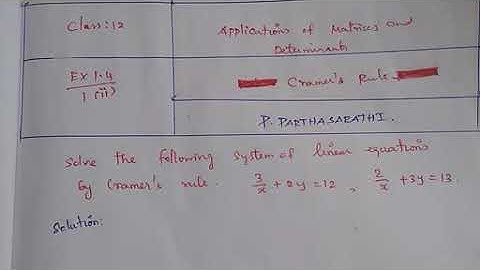 Class: 12
Applications of Matrices and Determinants
Ex 1.4
1 (ii)
Cramer's Rule
P. PARTHASARATHI.
Solve the following system of linear equations
by Cramer's rule. 3/x + 2y = 12 , 2/x + 3y = 13.
Solution: